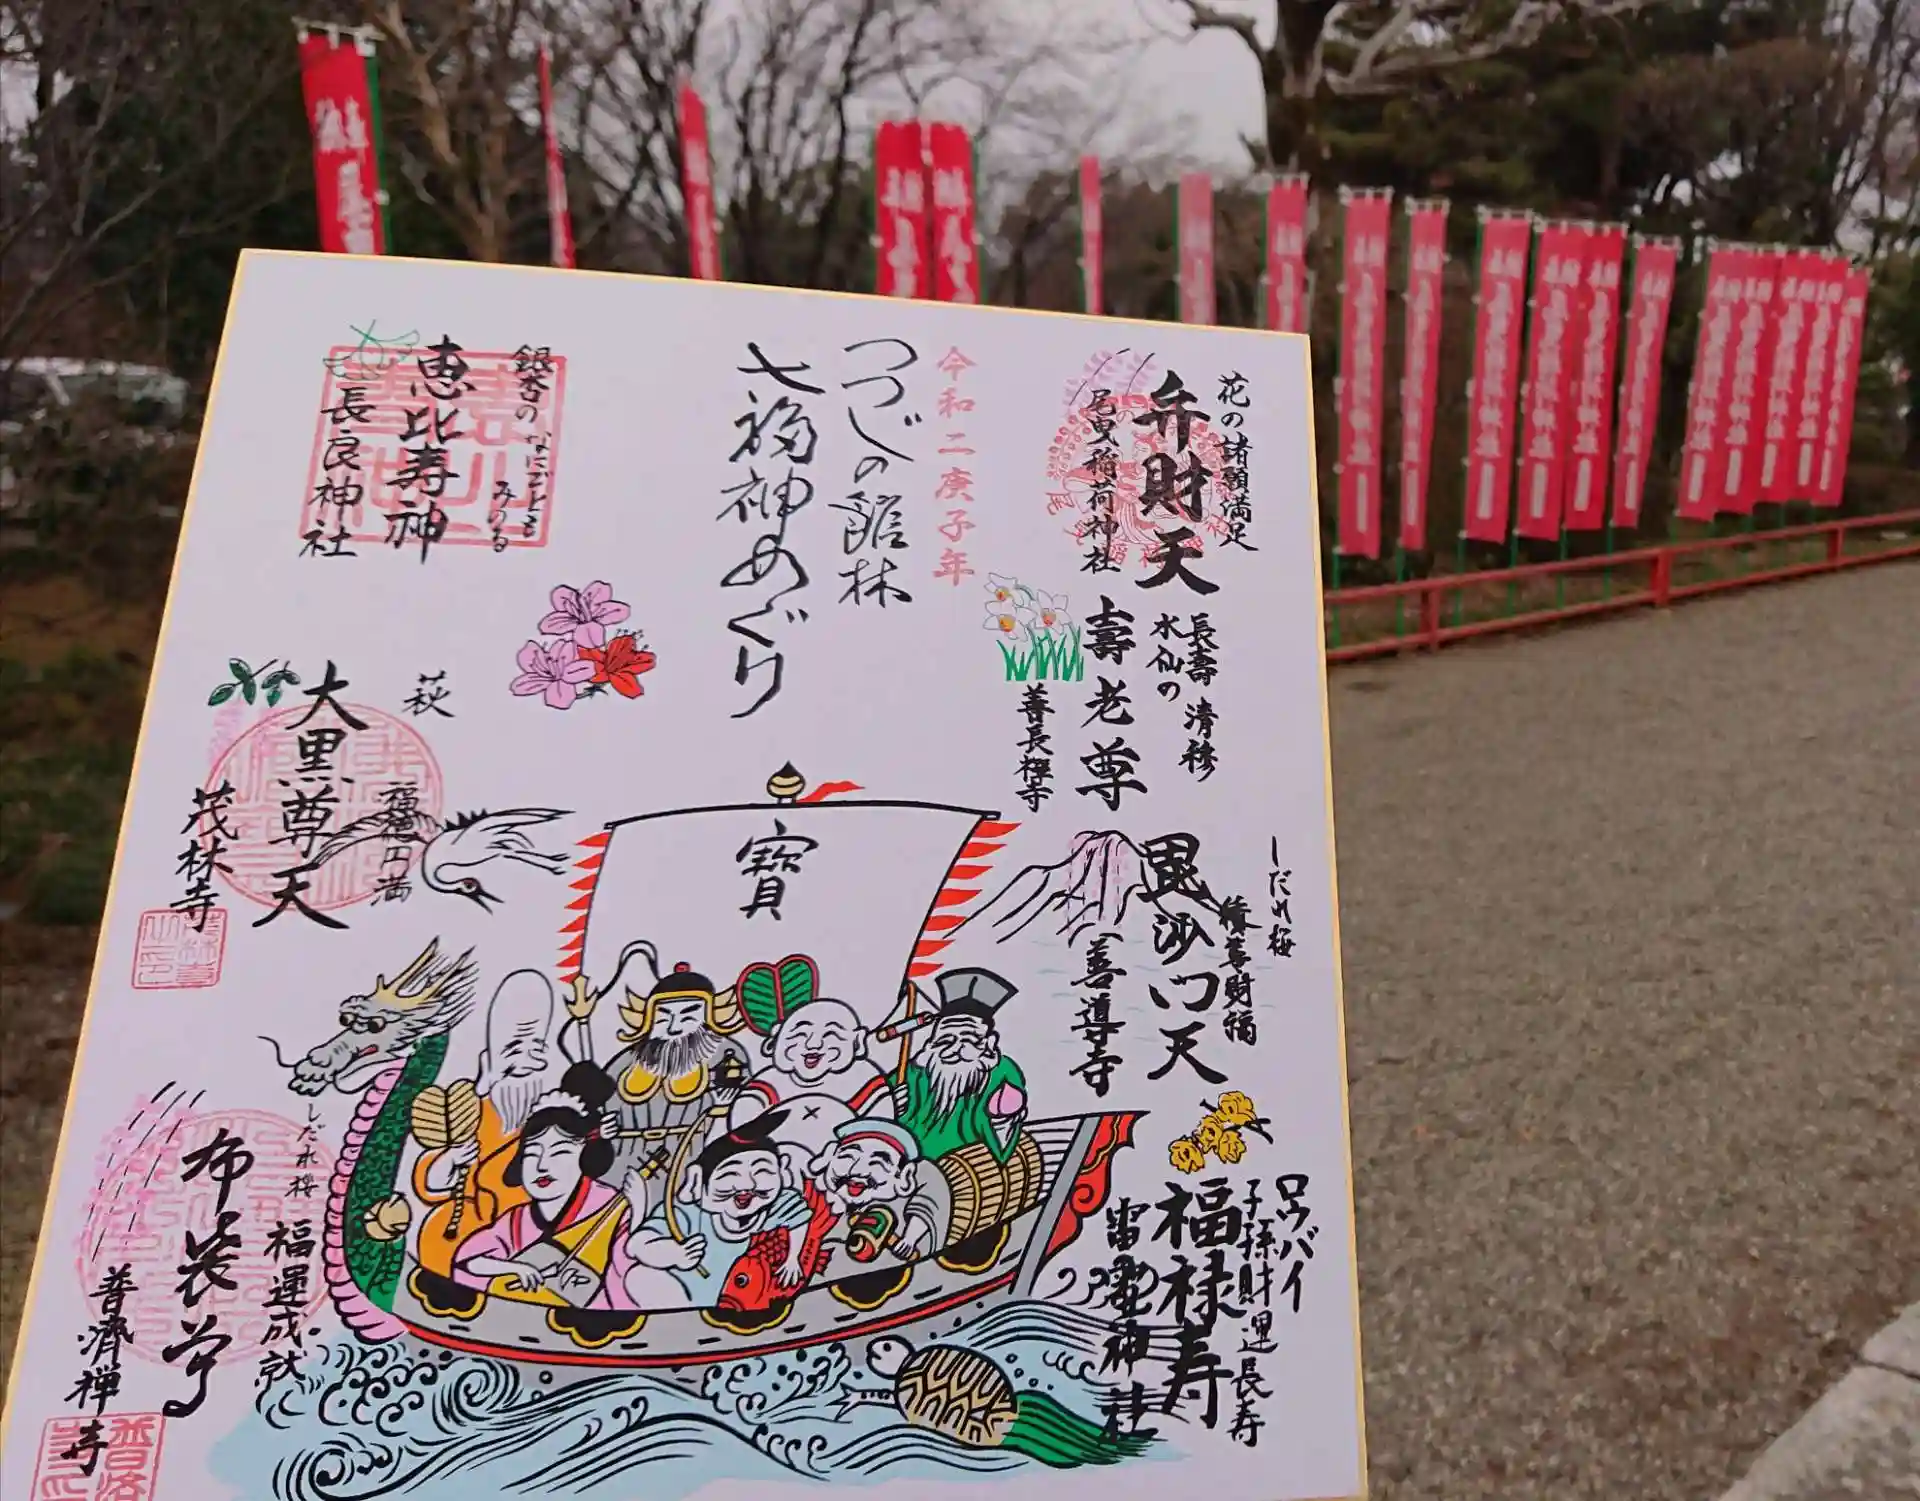 花の諸願満足
弁財天
尾曳稲荷神社
令和二庚子年
つつじの館林
七福神めぐり
銀杏の なにごとも
みのる
恵比寿神
長良神社
長壽 清穆
水仙の
壽老尊
善長禅寺
萩
福徳円満
大黒尊天
茂林寺
寶
しだれ梅
毘沙門天
善導寺
しだれ桜
福運成就
布袋尊
普濟禅寺
ロウバイ
子孫財運長寿
福禄寿
雷電神社